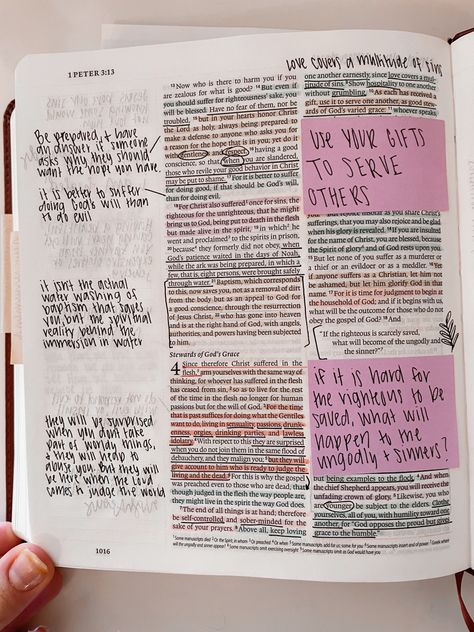 1 PETER 3:13
love covers a multitude of sins
Be prepared, + have
an answer if someone
asks why they should
want the hope you have
it is better to suffer
doing God's will than
to do evil
it isn't the actual
water washing of
baptism that saves
you but the spiritual
reality behind the
immersion in water
they will be surprised
when you don't take
part of worldly things,
+ they will heap to
abuse you. But they will
be here when the Lord
comes to judge the world
1016
13 Now who is there to harm you if you
are zealous for what is good? 14 But even if
you should suffer for righteousness' sake, you
will be blessed. Have no fear of them, nor be
troubled, 15 but in your hearts honor Christ
the Lord as holy, always being prepared to
make a defense to anyone who asks you for
a reason for the hope that is in you; yet do it
with gentleness and respect, 16 having a good
conscience, so that, when you are slandered,
those who revile your good behavior in Christ
may be put to shame. 17 For it is better to suffer
for doing good, if that should be God's will,
than for doing evil.
18 For Christ also suffered once for sins, the
righteous for the unrighteous, that he might
bring us to God, being put to death in the flesh
but made alive in the spirit, 19 in which he
went and proclaimed to the spirits in prison,
20 because they formerly did not obey, when
God's patience waited in the days of Noah,
while the ark was being prepared, in which a
few, that is, eight persons, were brought safely
through water. 21 Baptism, which corresponds
to this, now saves you, not as a removal of dirt
from the body but as an appeal to God for
a good conscience, through the resurrection
of Jesus Christ, 22 who has gone into heaven
and is at the right hand of God, with angels,
authorities, and powers having been subjected
to him.
Stewards of God's Grace
4 Since therefore Christ suffered in the
flesh, arm yourselves with the same way of
thinking, for whoever has suffered in the flesh
has ceased from sin, 2 so as to live for the rest
of the time in the flesh no longer for human
passions but for the will of God. 3 For the time
that is past suffices for doing what the Gentiles
want to do, living in sensuality, passions, drunk-
enness, orgies, drinking parties, and lawless
idolatry. 4 With respect to this they are surprised
when you do not join them in the same flood of
debauchery, and they malign you; 5 but they will
give account to him who is ready to judge the
living and the dead. 6 For this is why the gospel
was preached even to those who are dead, that
though judged in the flesh the way people are,
they might live in the spirit the way God does.
7 The end of all things is at hand; therefore
be self-controlled and sober-minded for the
sake of your prayers. 8 Above all, keep loving
one another earnestly, since love covers a mul-
titude of sins. 9 Show hospitality to one another
without grumbling. 10 As each has received a
gift, use it to serve one another, as good stew-
ards of God's varied grace: 11 whoever speaks,
USE YOUR GIFTS
TO SERVE
OTHERS
sufferings, that you may also rejoice and be glad
when his glory is revealed. 14 If you are insulted
for the name of Christ, you are blessed, because
the Spirit of glory and of God rests upon you.
15 But let none of you suffer as a murderer or
a thief or an evildoer or as a meddler. 16 Yet
if anyone suffers as a Christian, let him not
be ashamed, but let him glorify God in that
name. 17 For it is time for judgment to begin at
the household of God; and if it begins with us,
what will be the outcome for those who do not
obey the gospel of God? 18 And
"If the righteous is scarcely saved,
what will become of the ungodly and
the sinner?"
if it is hard for
the righteous to be
saved, what will
happen to the
ungodly + sinners?
but being examples to the flock. 4 And when
the chief Shepherd appears, you will receive the
unfading crown of glory. 5 Likewise, you who
are younger, be subject to the elders. Clothe
yourselves, all of you, with humility toward one
another, for "God opposes the proud but gives
grace to the humble."